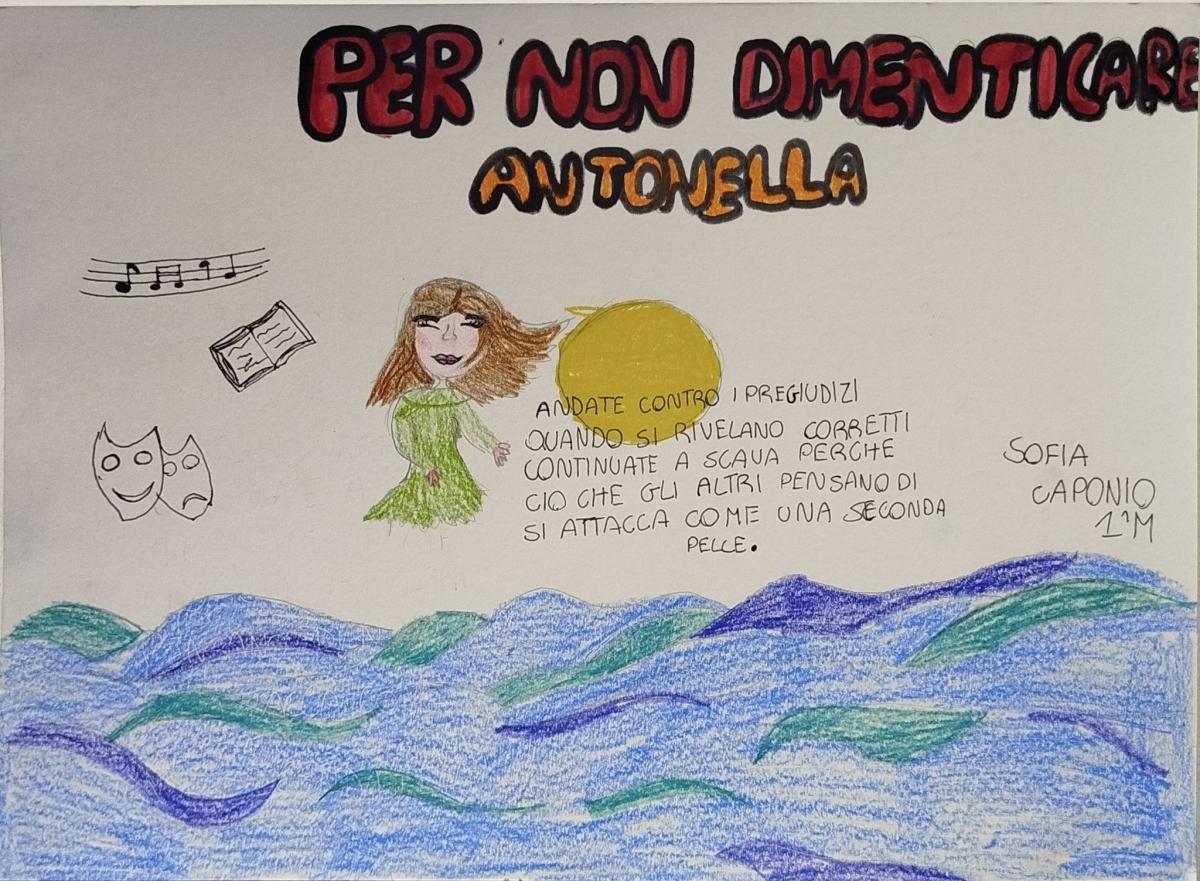 PER NON DIMENTICARE
ANTONELLA
ANDATE CONTRO I PREGIUDIZI
QUANDO SI RIVELANO CORRETTI
CONTINUATE A SCAVA PERCHE
CIO CHE GLI ALTRI PENSANO DI
SI ATTACCA COME UNA SECONDA
PELLE.
SOFIA
CAPONIO
1^M